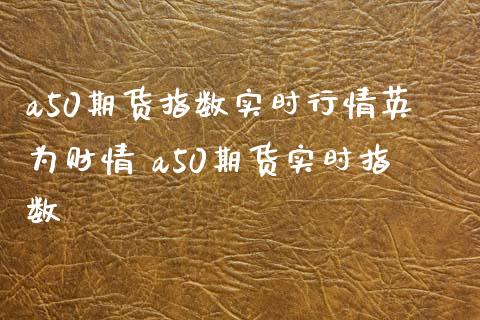 a50期货指数实时行情英
为财情 a50期货实时指
数